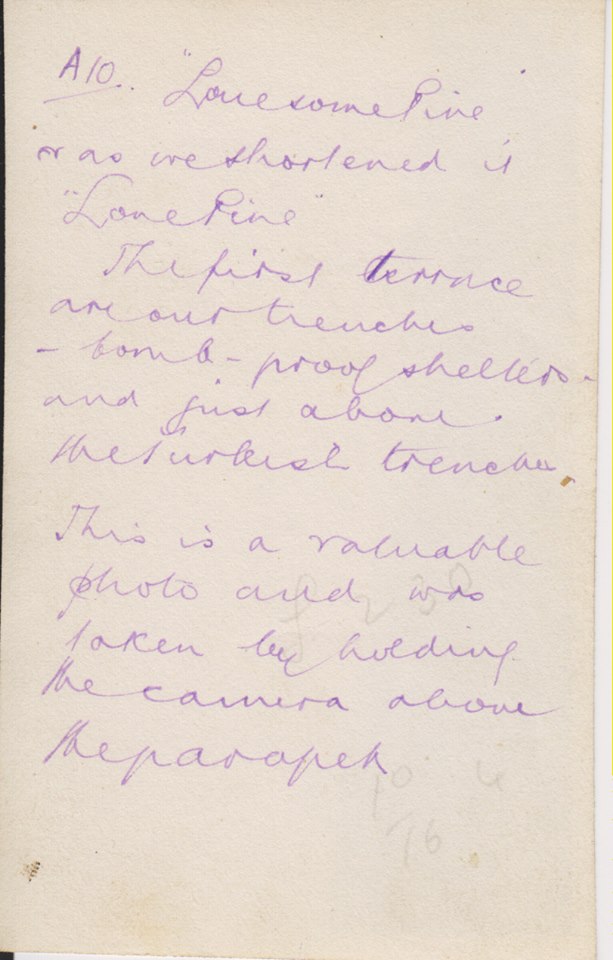 A10. "Lonesome Pine"
or as we shortened it
"Lone Pine"
The first terrace
are our trenches
- bomb-proof shelters -
and just above.
the Turkish trenches.
This is a valuable
photo and was
taken by holding
the camera above
the parapet